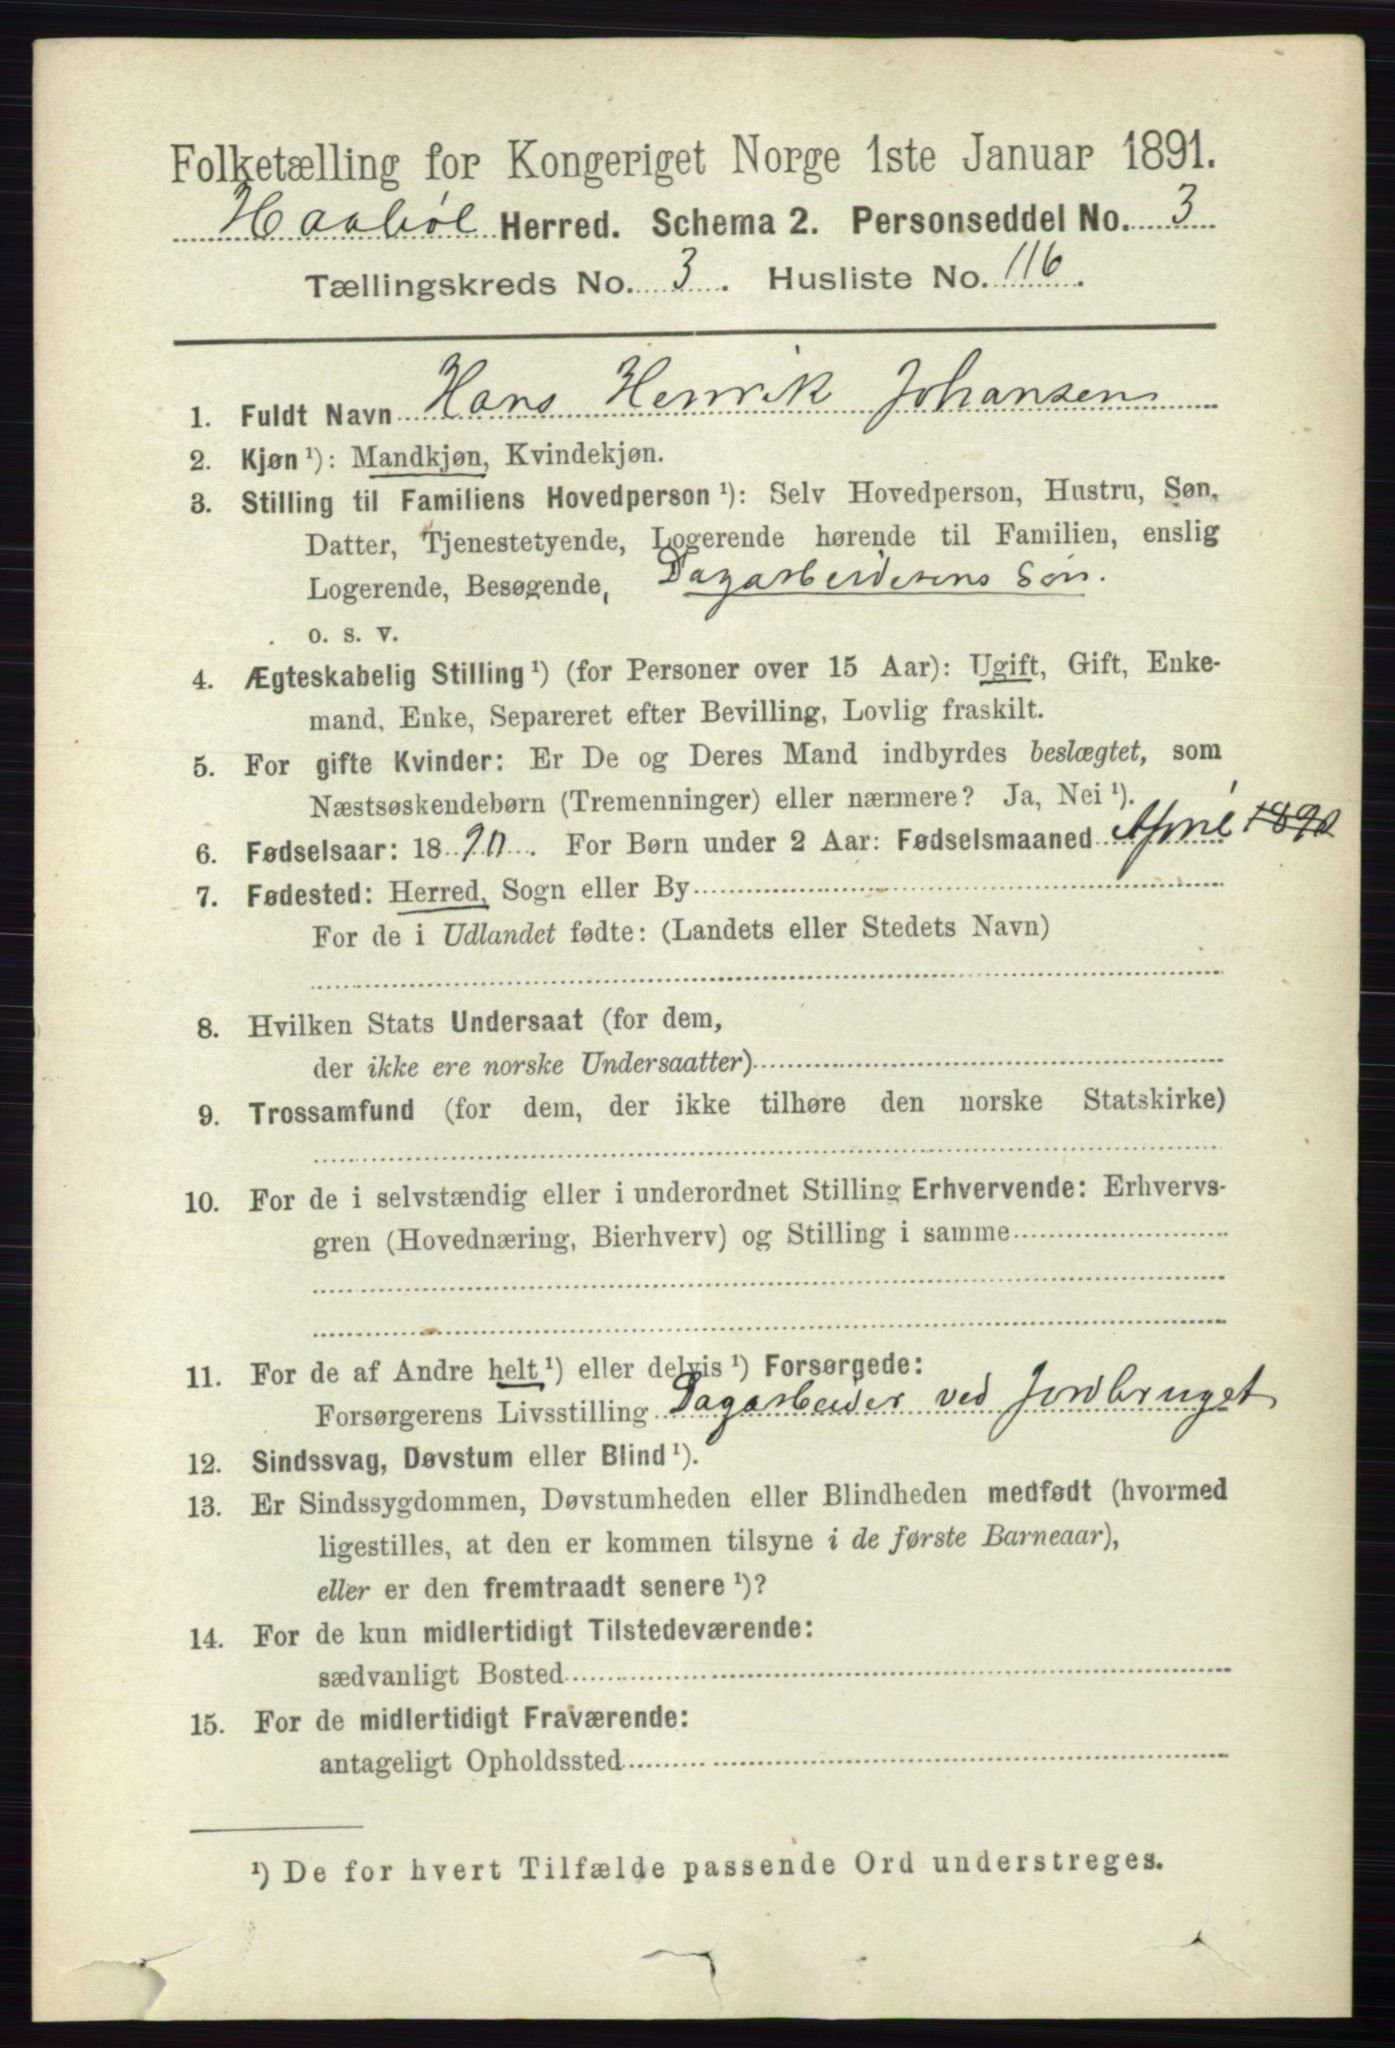 Folketælling for Kongeriget Norge 1ste Januar 1891.
Haabøl Herred. Schema 2. Personseddel No. 3
Tællingskreds No. 3. Husliste No. 116.
1. Fuldt Navn Hans Henrik Johansen
2. Kjøn ¹): Mandkjøn, Kvindekjøn.
3. Stilling til Familiens Hovedperson ¹): Selv Hovedperson, Hustru, Søn,
Datter, Tjenestetyende, Logerende hørende til Familien, enslig
Logerende, Besøgende, Dagarbeiderens Søn.
o. s. v.
4. Ægteskabelig Stilling ¹) (for Personer over 15 Aar): Ugift, Gift, Enke-
mand, Enke, Separeret efter Bevilling, Lovlig fraskilt.
5. For gifte Kvinder: Er De og Deres Mand indbyrdes beslægtet, som
Næstsøskendebørn (Tremenninger) eller nærmere? Ja, Nei ¹).
6. Fødselsaar: 18 90. For Børn under 2 Aar: Fødselsmaaned April 1890
7. Fødested: Herred, Sogn eller By
For de i Udlandet fødte: (Landets eller Stedets Navn)
8. Hvilken Stats Undersaat (for dem,
der ikke ere norske Undersaatter)
9. Trossamfund (for dem, der ikke tilhøre den norske Statskirke)
10. For de i selvstændig eller i underordnet Stilling Erhvervende: Erhvervs-
gren (Hovednæring, Bierhverv) og Stilling i samme
11. For de af Andre helt ¹) eller delvis ¹) Forsørgede:
Forsørgerens Livsstilling Dagarbeider ved Jordbruget
12. Sindssvag, Døvstum eller Blind ¹).
13. Er Sindssygdommen, Døvstumheden eller Blindheden medfødt (hvormed
ligestilles, at den er kommen tilsyne i de første Barneaar),
eller er den fremtraadt senere ¹)?
14. For de kun midlertidigt Tilstedeværende:
sædvanligt Bosted
15. For de midlertidigt Fraværende:
antageligt Opholdssted
¹) De for hvert Tilfælde passende Ord understreges.